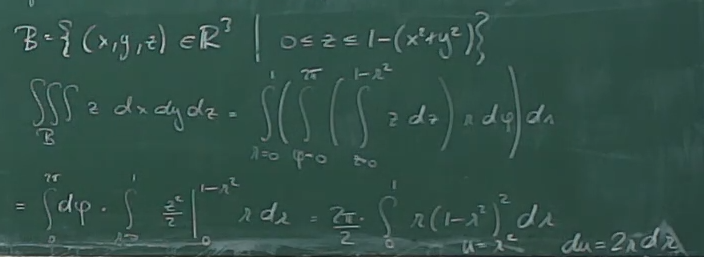 B = { (x,y,z) ∈ ℝ³ | 0 ≤ z ≤ 1-(x²+y²) }
∭_B z dx dy dz = ∫_{r=0}^{1} ( ∫_{φ=0}^{2π} ( ∫_{z=0}^{1-r²} z dz ) r dφ ) dr
= ∫_0^{2π} dφ · ∫_{r=0}^{1} z²/2 |_0^{1-r²} r dr = 2π/2 · ∫_0^1 r(1-r²)² dr
u = r² du = 2r dr